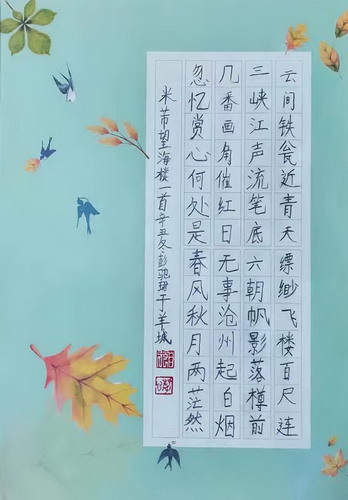 云间铁瓮近青天缥缈飞楼百尺连
三峡江声流笔底六朝帆影落樽前
几番画角催红日无事沧州起白烟
忽忆赏心何处是春风秋月两茫然
米芾望海楼一首辛丑冬彭驰于羊城